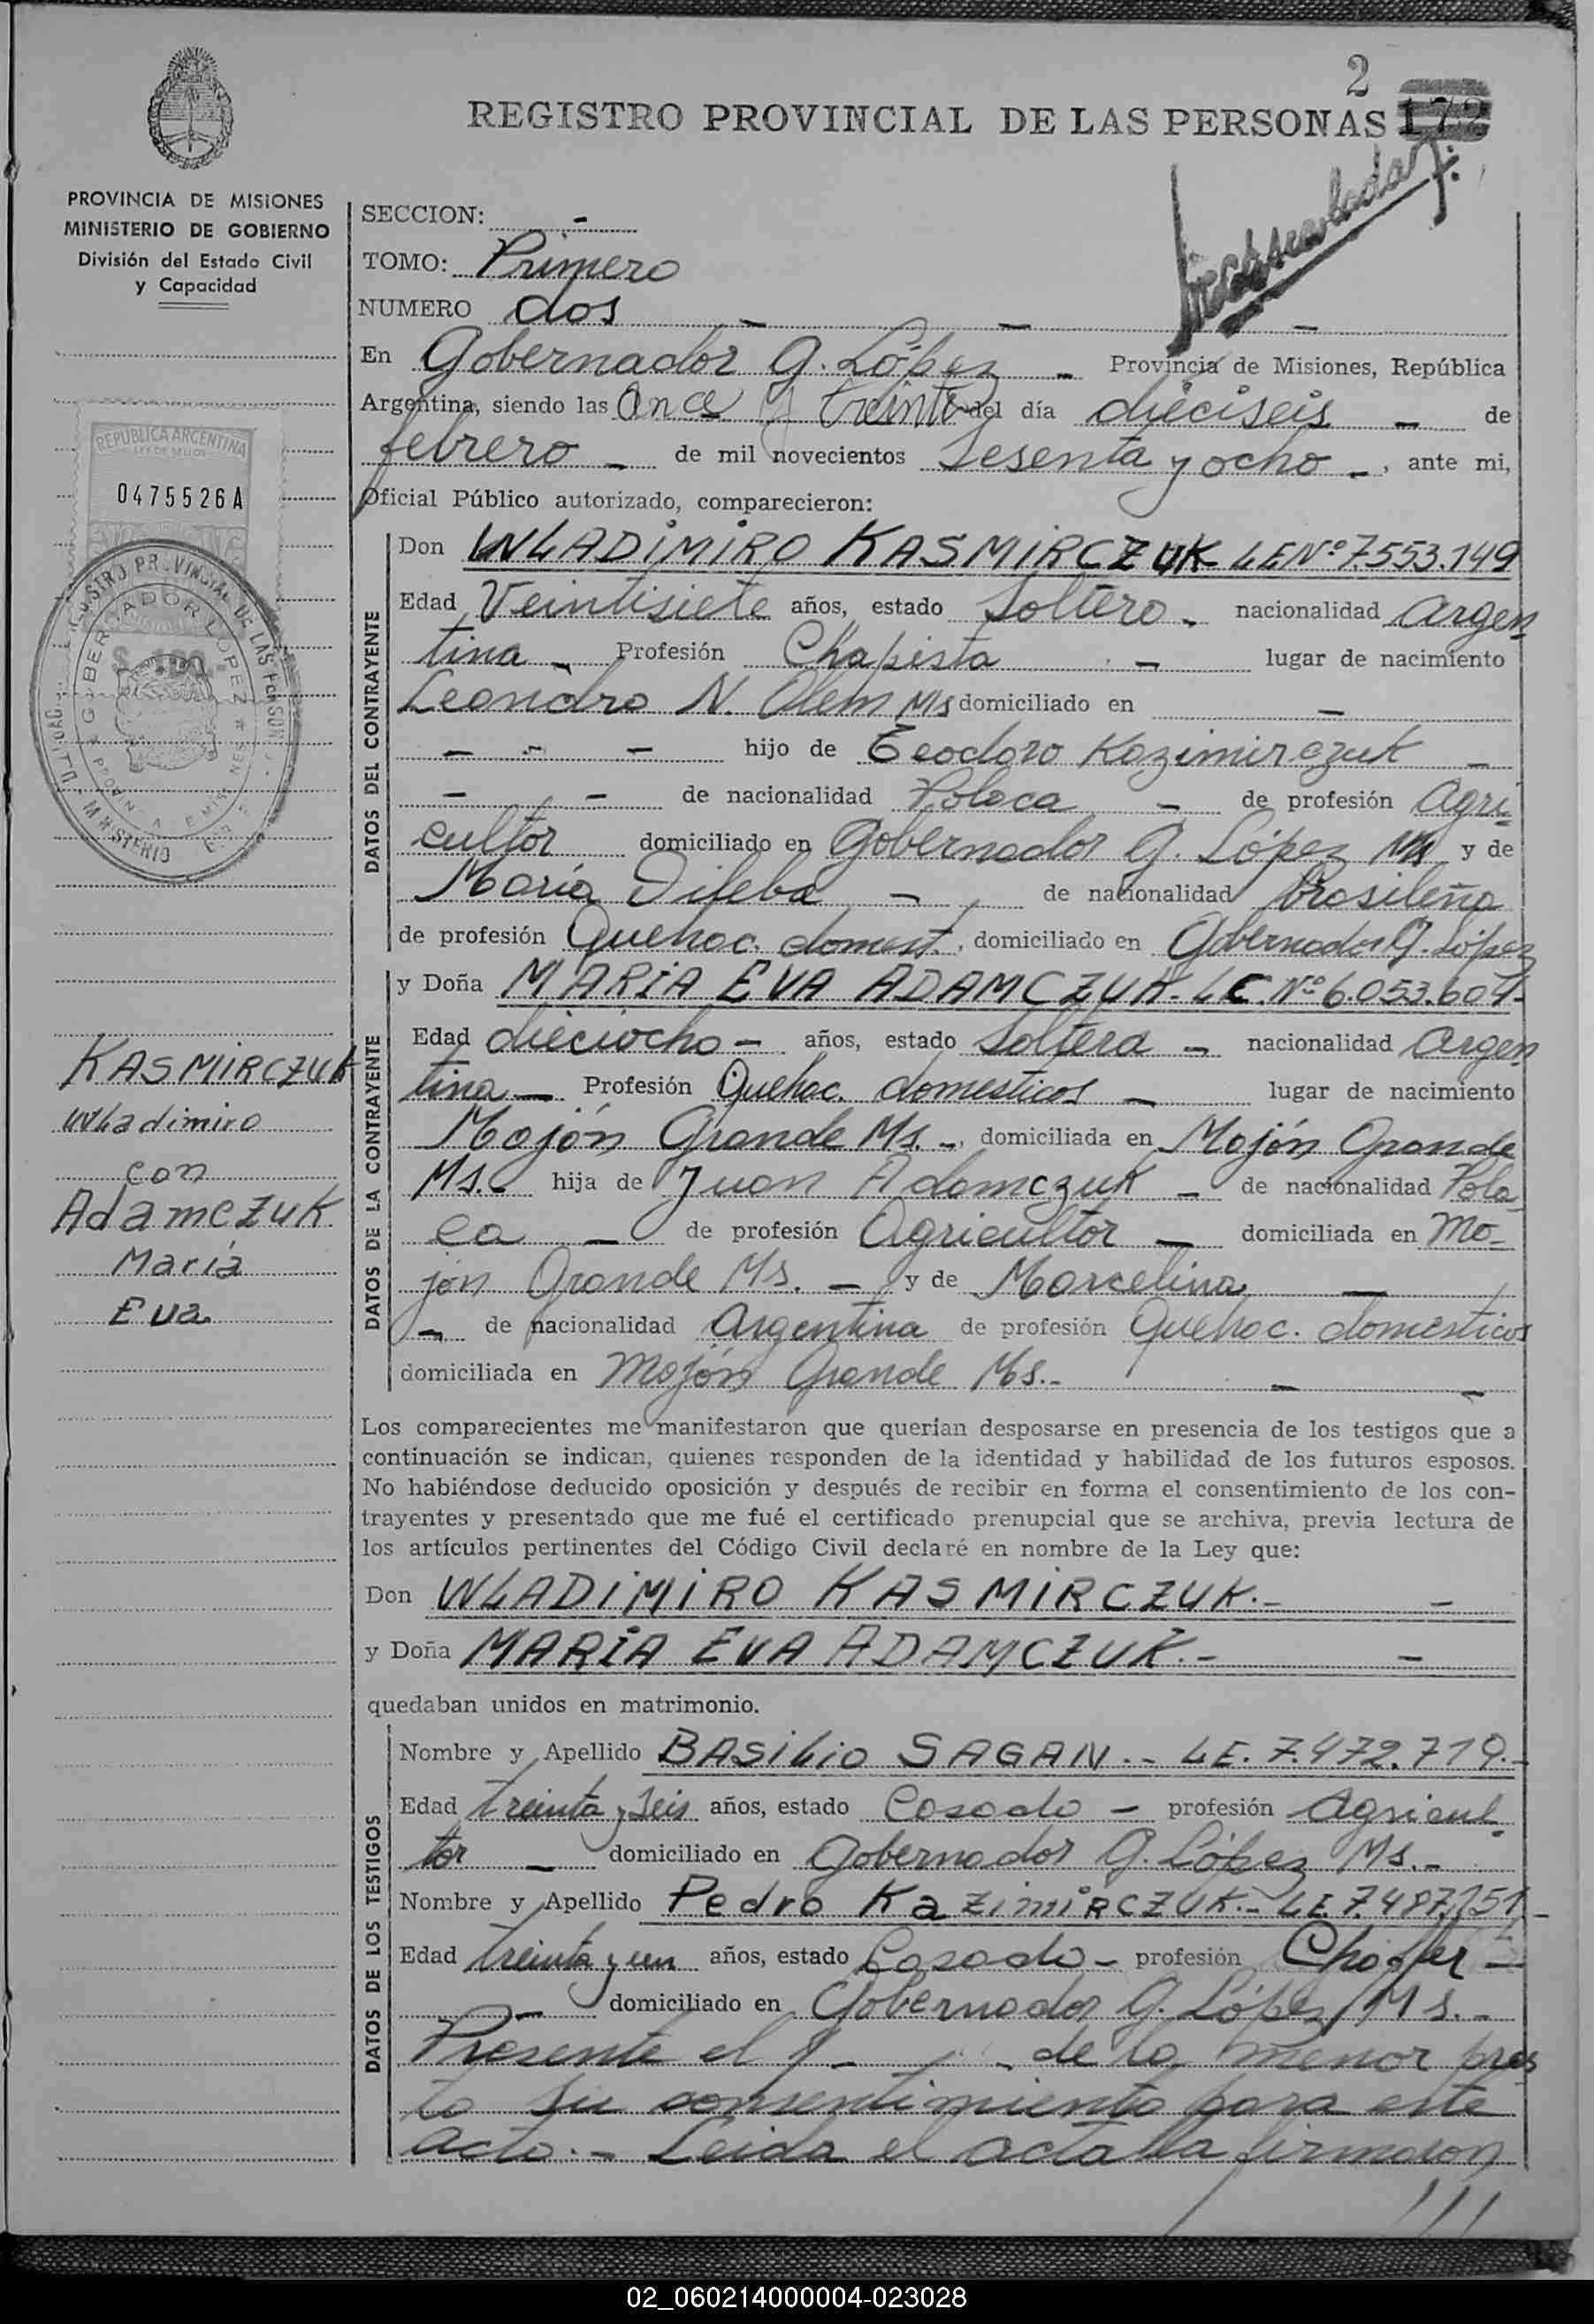 2
REGISTRO PROVINCIAL DE LAS PERSONAS 172
PROVINCIA DE MISIONES
MINISTERIO DE GOBIERNO
División del Estado Civil
y Capacidad
SECCION: -
TOMO: Primero
NUMERO dos - - -
En Gobernador G. López - Provincia de Misiones, República
Argentina, siendo las Once y treinta del día dieciseis - de
febrero - de mil novecientos sesenta y ocho -, ante mi,
Oficial Público autorizado, comparecieron:
REPUBLICA ARGENTINA
LEY DE SELLOS
0475526A
DATOS DEL CONTRAYENTE
Don WLADIMIRO KASMIRCZUK LE Nº 7.553.149
Edad Veintisiete años, estado Soltero - nacionalidad Argen
tina - Profesión Chapista - lugar de nacimiento
Leandro N. Alem Ms domiciliado en -
- - - hijo de Teodoro Kazimirczuk -
- - de nacionalidad Polaca - de profesión Agri
cultor domiciliado en Gobernador G. López Ms y de
María Dileba - de nacionalidad Brasileña
de profesión Quehac. domest., domiciliado en Gobernador G. López
DATOS DE LA CONTRAYENTE
y Doña MARIA EVA ADAMCZUK - LC. Nº 6.053.604-
Edad dieciocho - años, estado Soltera - nacionalidad Argen
tina - Profesión Quehac. domesticos - lugar de nacimiento
Mojón Grande Ms. -, domiciliada en Mojón Grande
Ms. - hija de Juan Adamczuk - de nacionalidad Pola
ca - de profesión Agricultor - domiciliada en Mo-
jón Grande Ms. - y de Marcelina -
- de nacionalidad Argentina de profesión Quehac. domesticos
domiciliada en Mojón Grande Ms.- - -
KASMIRCZUK
Wladimiro
con
Adamczuk
María
Eva
Los comparecientes me manifestaron que querían desposarse en presencia de los testigos que a
continuación se indican, quienes responden de la identidad y habilidad de los futuros esposos.
No habiéndose deducido oposición y después de recibir en forma el consentimiento de los con-
trayentes y presentado que me fué el certificado prenupcial que se archiva, previa lectura de
los artículos pertinentes del Código Civil declaré en nombre de la Ley que:
Don WLADIMIRO KASMIRCZUK.- -
y Doña MARIA EVA ADAMCZUK.- -
quedaban unidos en matrimonio.
DATOS DE LOS TESTIGOS
Nombre y Apellido BASILIO SAGAN.-- LE. 7.472.719.-
Edad treinta y seis años, estado Casado - profesión Agricul
tor - domiciliado en Gobernador G. López Ms.-
Nombre y Apellido Pedro KAZIMIRCZUK.- LE. 7.487.151-
Edad treinta y un años, estado Casado - profesión Chofer -
- domiciliado en Gobernador G. López Ms. -
Presente el - - de la menor pres
ta su consentimiento para este
acto.- Leida el acta la firmaron
///
02_060214000004-023028